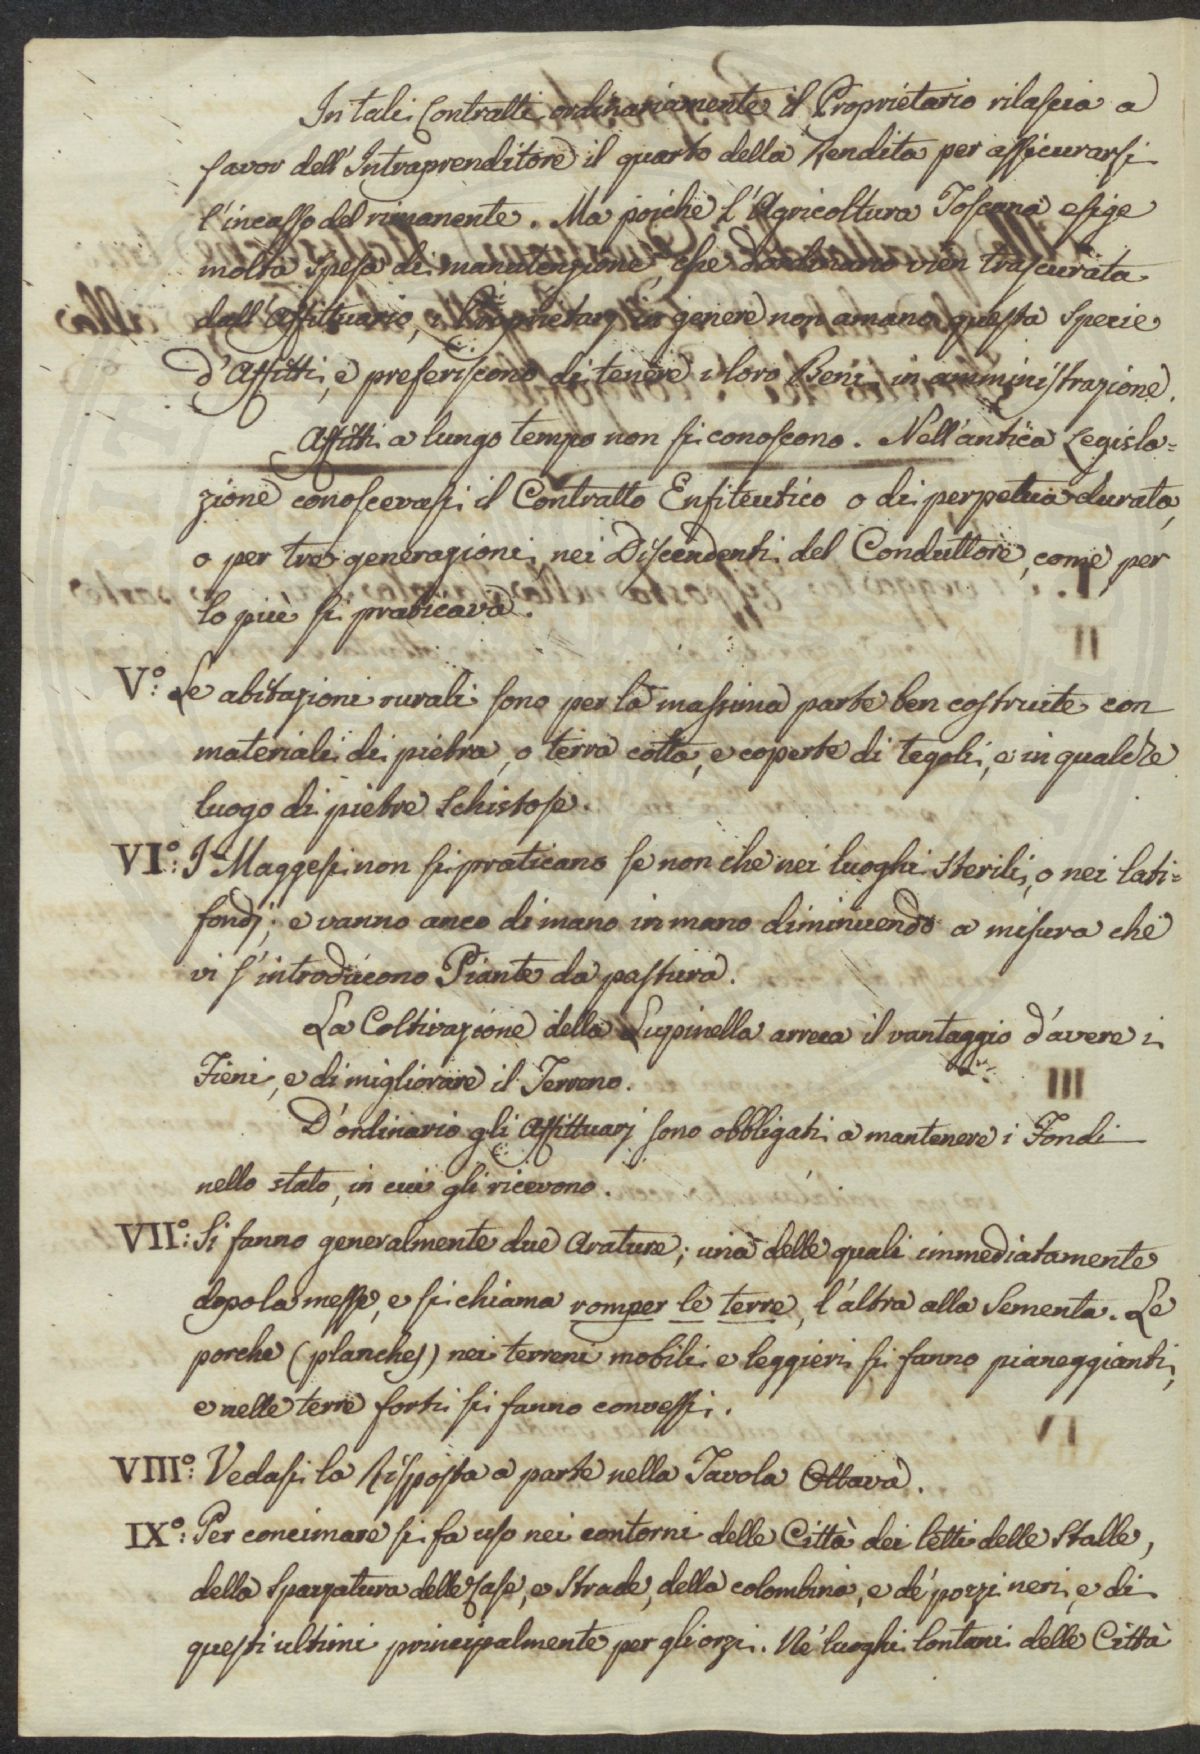 In tali Contratti ordinariamente il Proprietario rilascia a
favor dell'Intraprenditore il quarto della Rendita per assicurarsi
l'incasso del rimanente. Ma poiche l'Agricoltura Toscana esige
molta spesa di manutenzione che d'ordinario vien trascurata
dall'Affittuario, i Proprietarj in genere non amano questa specie
d'Affitti, e preferiscono di tenere i loro Beni in amministrazione.
Affitti a lungo tempo non si conoscono. Nell'antica Legisla=
zione conoscevasi il Contratto Enfiteutico o di perpetua durata,
o per tre generazioni nei Discendenti del Conduttore, come per
lo più si praticava.
V.º: Le abitazioni rurali sono per la massima parte ben costruite con
materiali di pietra, o terra cotta, e coperte di tegoli, e in qualche
luogo di pietre Schistose.
VI.º: I Maggesi non si praticano se non che nei luoghi sterili, o nei lati=
fondj; e vanno anco di mano in mano diminuendo a misura che
vi s'introducono Piante da pastura.
La Coltivazione della Lupinella arreca il vantaggio d'avere i
Fieni, e di migliorare il Terreno.
D'ordinario gli Affittuarj sono obbligati a mantenere i Fondi
nello stato, in cui gli ricevono.
VII.º: Si fanno generalmente due Arature; una delle quali immediatamente
dopo la messe, e si chiama romper le terre, l'altra alla Sementa. Le
porche (planches) nei terreni mobili e leggieri si fanno pianeggianti,
e nelle terre forti si fanno convessi.
VIII.º: Vedasi la Risposta a parte nella Tavola Ottava.
IX.º: Per concimare si fa uso nei contorni delle Città dei letti delle Stalle,
della Spazzatura delle Case, e Strade, della colombina, e de' pozzi neri, e di
questi ultimi principalmente per gli orzi. Ne' luoghi lontani delle Città